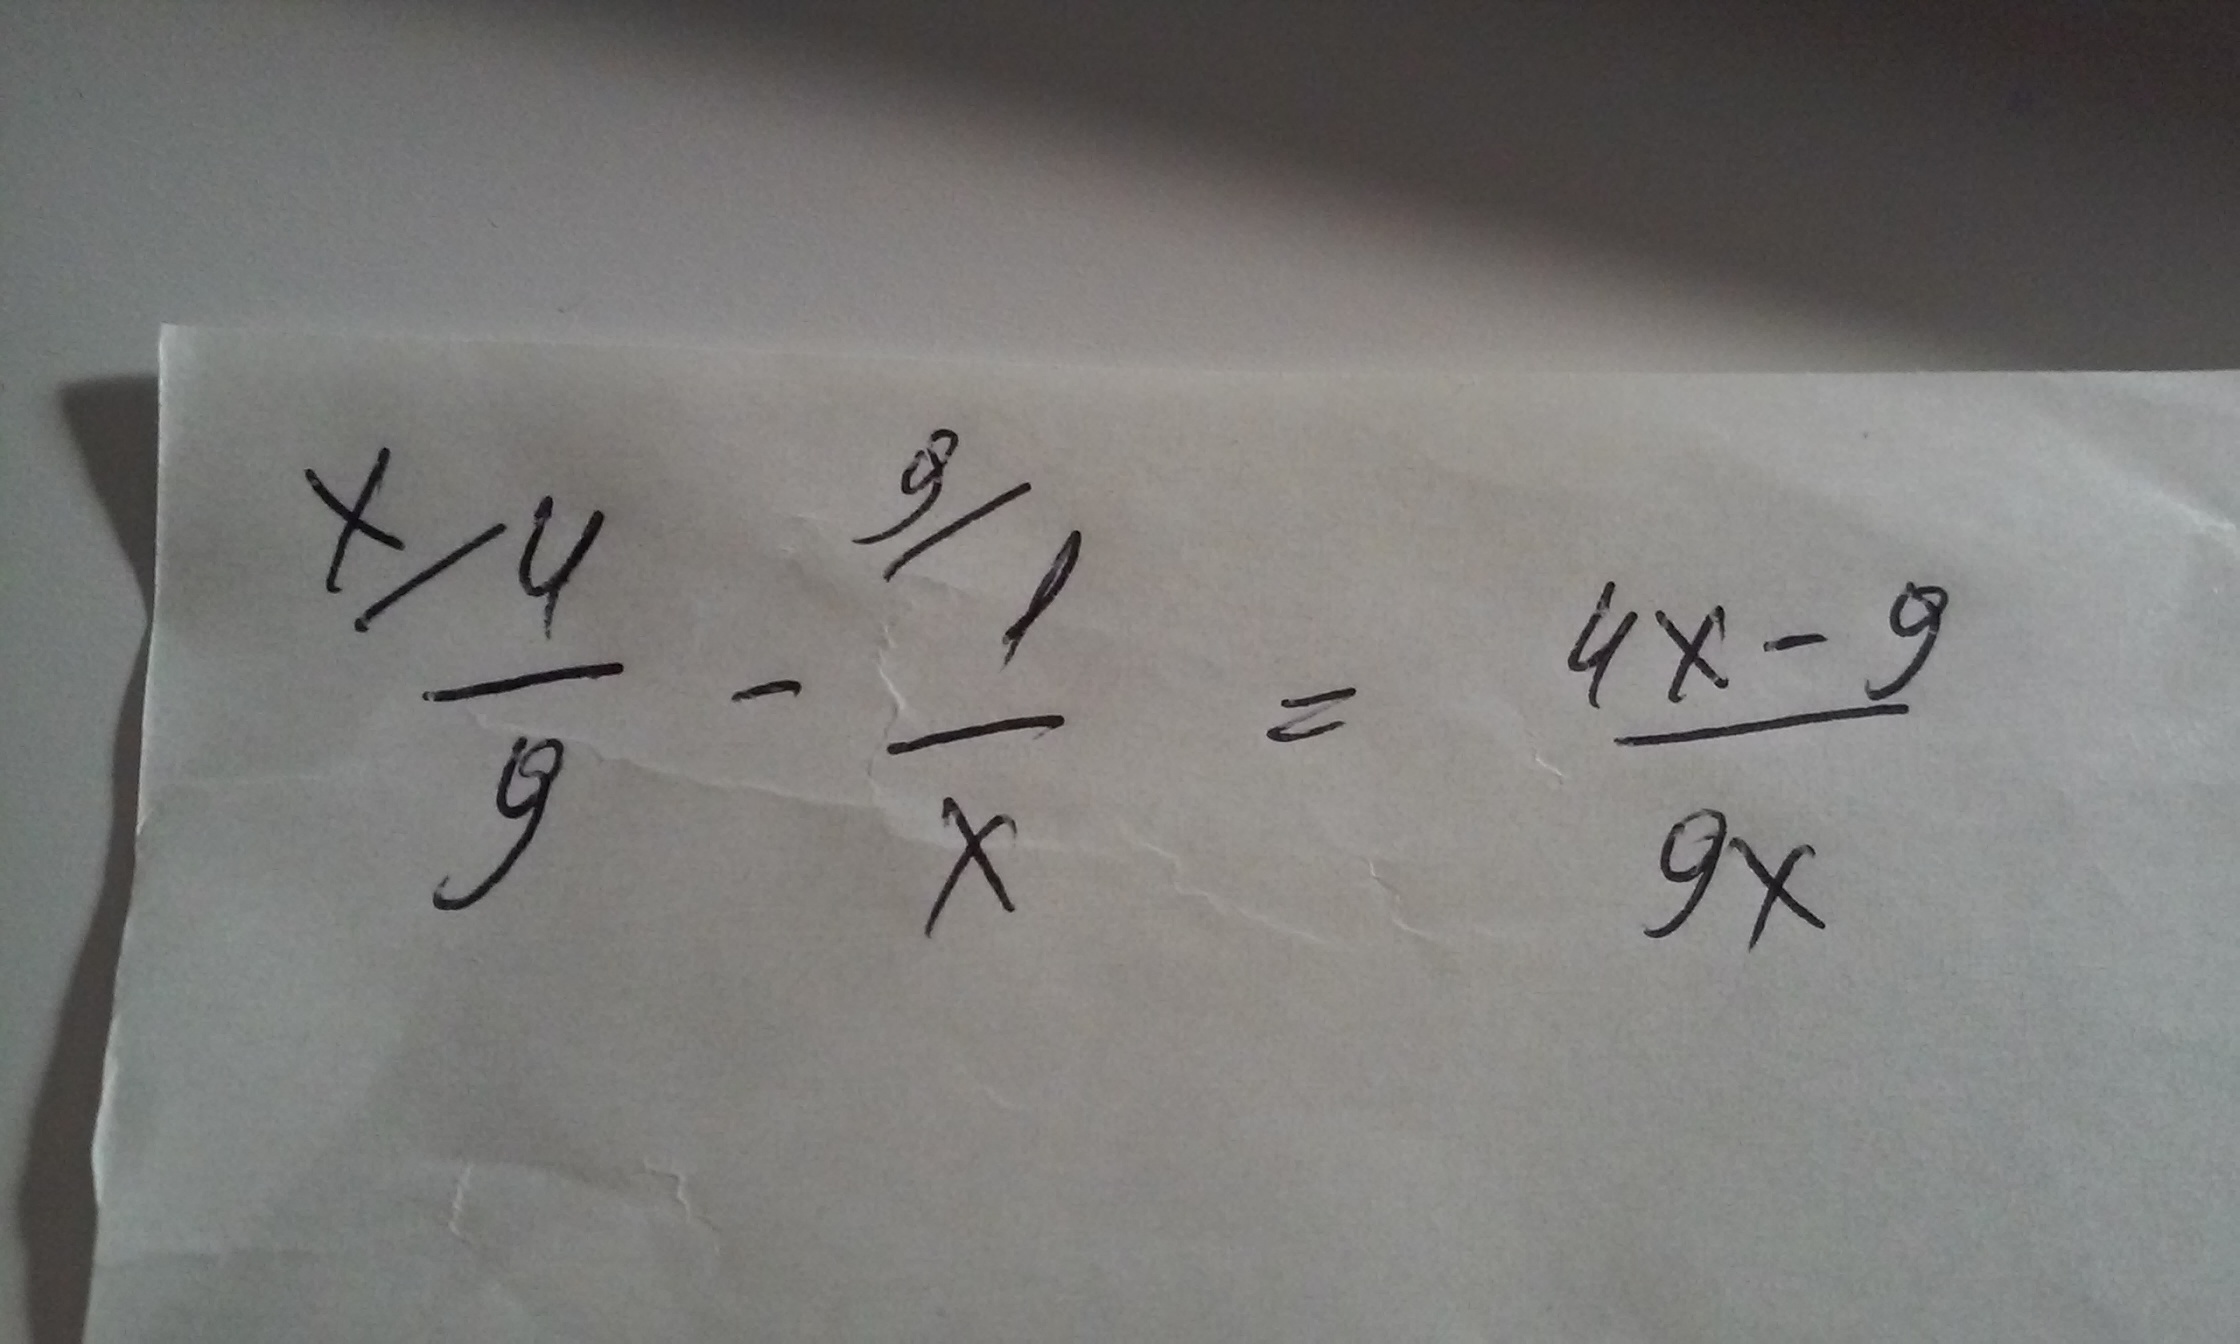 x/4/9 - 9/1/x = 4x-9/9x